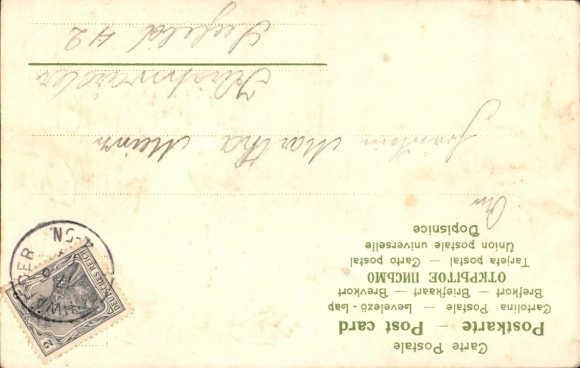 Carte Postale
Postkarte — Post card
Cartolina Postale — Levelező-Lap
Brefkort — Briefkaart — Brevkort
ОТКРЫТОЕ ПИСЬМО
Tarjeta postal — Carto postal
Union postale universelle
Dopisnice
An
Fräulein Martha
Seefeld 42
DEUTSCHES REICH
2
4-5N.